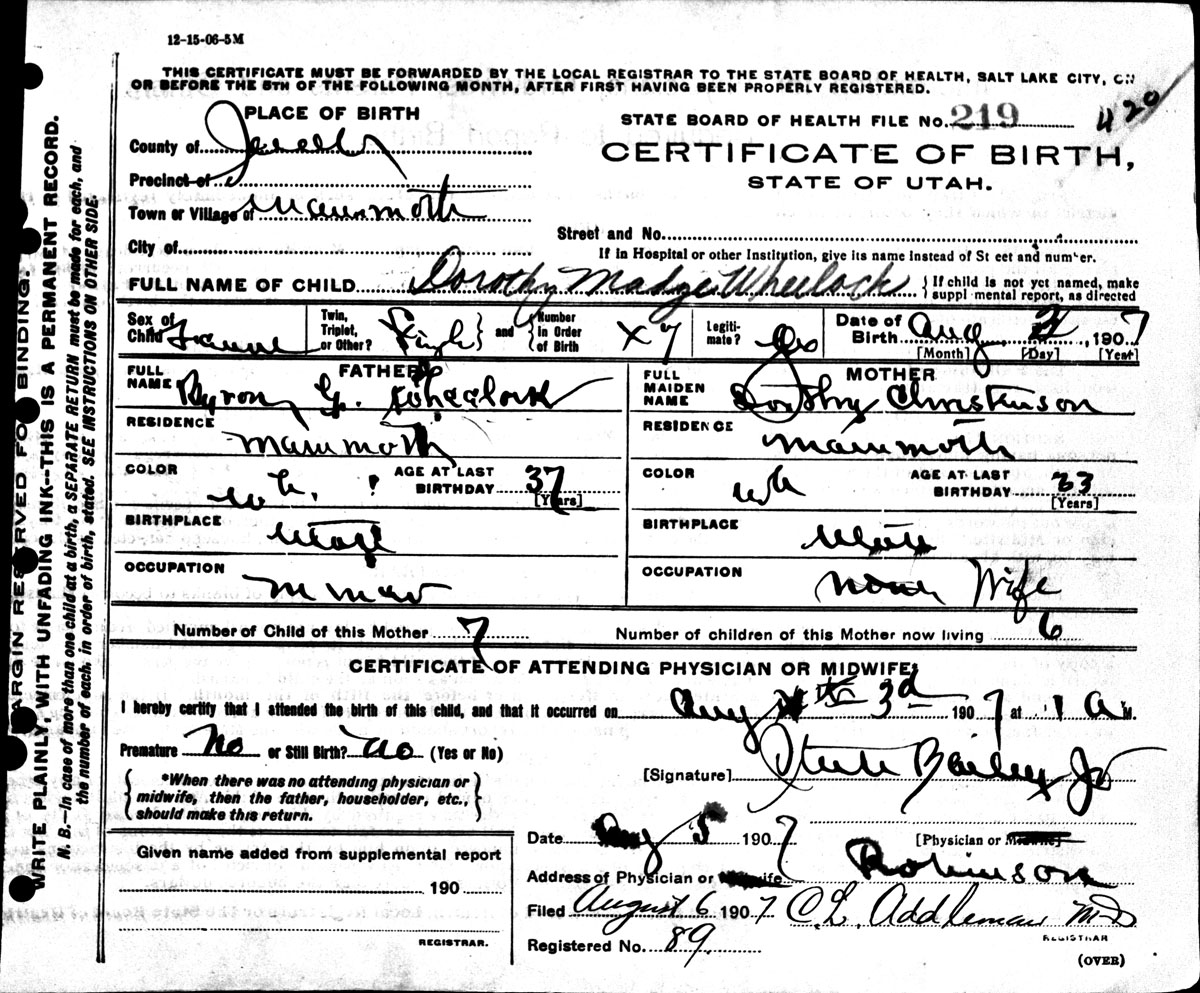 12-15-06-5M
THIS CERTIFICATE MUST BE FORWARDED BY THE LOCAL REGISTRAR TO THE STATE BOARD OF HEALTH, SALT LAKE CITY, ON
OR BEFORE THE 5TH OF THE FOLLOWING MONTH, AFTER FIRST HAVING BEEN PROPERLY REGISTERED.
PLACE OF BIRTH
County of
Precinct of
Town or Village of Mammoth
City of
STATE BOARD OF HEALTH FILE No. 219
429
CERTIFICATE OF BIRTH,
STATE OF UTAH.
Street and No.
If in Hospital or other Institution, give its name instead of St eet and number.
FULL NAME OF CHILD Dorothy Madge Wheelock
If child is not yet named, make
suppl mental report, as directed
Sex of Child
Twin, Triplet, or Other? Single and Number in Order of Birth X 7
Legitimate? Yes
Date of Birth Aug 2, 1907
[Month] [Day] [Year]
FATHER
FULL NAME Byron G. Wheelock
RESIDENCE Mammoth
COLOR Wh. AGE AT LAST BIRTHDAY 37
[Years]
BIRTHPLACE Utah
OCCUPATION
MOTHER
FULL MAIDEN NAME Dorothy Christenson
RESIDENCE Mammoth
COLOR Wh AGE AT LAST BIRTHDAY 33
[Years]
BIRTHPLACE
OCCUPATION Wife
Number of Child of this Mother 7
Number of children of this Mother now living 6
CERTIFICATE OF ATTENDING PHYSICIAN OR MIDWIFE
I hereby certify that I attended the birth of this child, and that it occurred on Aug 3d 1907 at 1 A M.
Premature No or Still Birth? No (Yes or No)
*When there was no attending physician or
midwife, then the father, householder, etc.,
should make this return.
[Signature] Steele Bailey Jr
[Physician or Midwife]
Date Aug 5 1907
Address of Physician or Midwife Robinson
Filed August 6 1907 C. L. Addleman MD
REGISTRAR
Registered No. 89
(OVER)
Given name added from supplemental report
190
REGISTRAR.
MARGIN RESERVED FOR BINDING.
WRITE PLAINLY WITH UNFADING INK--THIS IS A PERMANENT RECORD.
N. B.--In case of more than one child at a birth, a SEPARATE RETURN must be made for each, and
the number of each, in order of birth, stated. SEE INSTRUCTIONS ON OTHER SIDE.